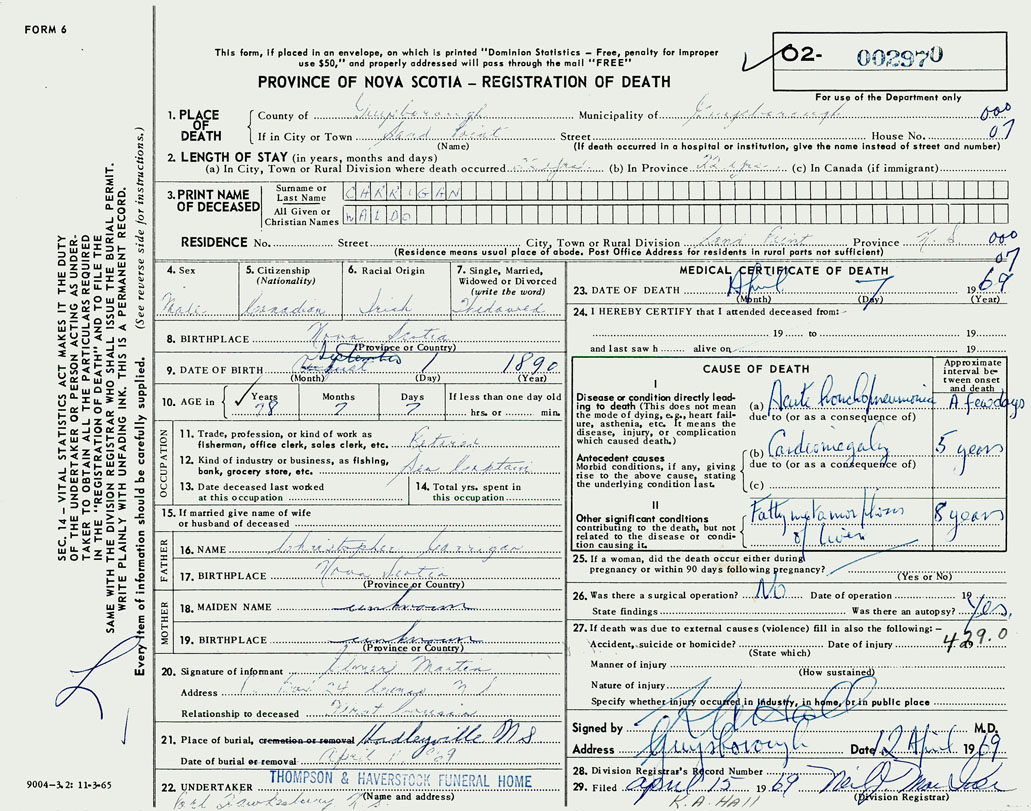 FORM 6
This form, if placed in an envelope, on which is printed "Dominion Statistics – Free, penalty for improper
use $50," and properly addressed will pass through the mail "FREE"
O2- 002970
PROVINCE OF NOVA SCOTIA – REGISTRATION OF DEATH
For use of the Department only
1. PLACE OF DEATH
County of Guysborough Municipality of Guysborough 000
If in City or Town Sand Point Street House No. 07
(Name) (If death occurred in a hospital or institution, give the name instead of street and number)
2. LENGTH OF STAY (in years, months and days)
(a) In City, Town or Rural Division where death occurred yrs. (b) In Province yrs. (c) In Canada (if immigrant)
3. PRINT NAME OF DECEASED
Surname or Last Name CARRIGAN
All Given or Christian Names WALDO
RESIDENCE No. Street City, Town or Rural Division Sand Point Province N.S. 000
(Residence means usual place of abode. Post Office Address for residents in rural parts not sufficient) 07
4. Sex 5. Citizenship (Nationality) 6. Racial Origin 7. Single, Married, Widowed or Divorced (write the word)
Male Canadian Irish Widowed
8. BIRTHPLACE Nova Scotia
(Province or Country)
September
9. DATE OF BIRTH August 1 1890
(Month) (Day) (Year)
10. AGE in Years Months Days If less than one day old
78 7 7 hrs. or min.
OCCUPATION
11. Trade, profession, or kind of work as
fisherman, office clerk, sales clerk, etc. Retired
12. Kind of industry or business, as fishing,
bank, grocery store, etc. Sea Captain
13. Date deceased last worked
at this occupation
14. Total yrs. spent in
this occupation
15. If married give name of wife
or husband of deceased
FATHER
16. NAME Christopher Carrigan
17. BIRTHPLACE Nova Scotia
(Province or Country)
MOTHER
18. MAIDEN NAME unknown
19. BIRTHPLACE unknown
(Province or Country)
20. Signature of informant Martin
Address Box 24 N S
Relationship to deceased First Cousin
21. Place of burial, cremation or removal Hadleyville N S
Date of burial or removal April 69
THOMPSON & HAVERSTOCK FUNERAL HOME
22. UNDERTAKER
(Name and address)
Port Hawkesbury N.S.
MEDICAL CERTIFICATE OF DEATH
23. DATE OF DEATH April 7 1969
(Month) (Day) (Year)
24. I HEREBY CERTIFY that I attended deceased from:-
19 to 19
and last saw h alive on 19
CAUSE OF DEATH
Approximate interval between onset and death
I
Disease or condition directly leading to death (This does not mean the mode of dying, e.g., heart failure, asthenia, etc. It means the disease, injury, or complication which caused death.)
(a) Acute bronchopneumonia A few days
due to (or as a consequence of)
Antecedent causes
Morbid conditions, if any, giving rise to the above cause, stating the underlying condition last.
(b) Cardiomegaly 5 years
due to (or as a consequence of)
(c)
II
Other significant conditions contributing to the death, but not related to the disease or condition causing it.
Fatty metamorphosis 8 years
of liver
25. If a woman, did the death occur either during
pregnancy or within 90 days following pregnancy?
(Yes or No)
26. Was there a surgical operation? No Date of operation 19
State findings Was there an autopsy? Yes.
27. If death was due to external causes (violence) fill in also the following: –
Accident, suicide or homicide? Date of injury 19
(State which)
Manner of injury
(How sustained)
Nature of injury
Specify whether injury occurred in industry, in home, or in public place
Signed by M.D.
Address Guysborough Date 12 April 1969
28. Division Registrar's Record Number
29. Filed April 15 1969
K.A. Hall (Division Registrar)
SEC. 14 – VITAL STATISTICS ACT MAKES IT THE DUTY
OF THE UNDERTAKER OR PERSON ACTING AS UNDER-
TAKER TO OBTAIN ALL THE PARTICULARS REQUIRED
IN THE "REGISTRATION OF DEATH" AND TO FILE THE
SAME WITH THE DIVISION REGISTRAR WHO SHALL ISSUE THE BURIAL PERMIT.
WRITE PLAINLY WITH UNFADING INK. THIS IS A PERMANENT RECORD.
Every item of information should be carefully supplied. (See reverse side for instructions.)
9004–3.2: 11-3-65